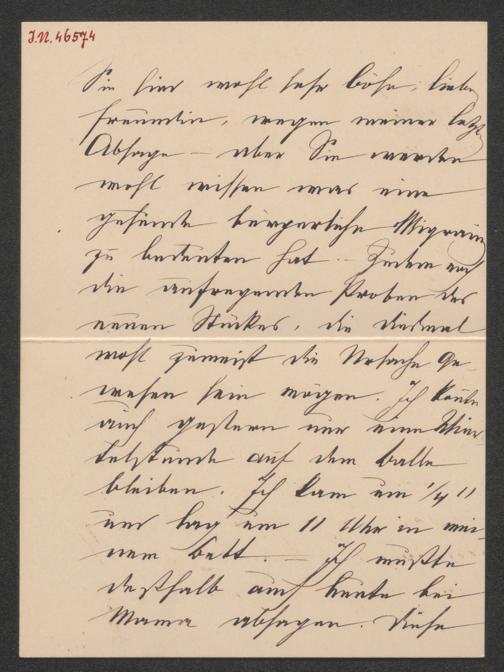 I.N. 46574
Sie sind wohl sehr böse, liebe
Freundin, wegen meiner letzten
Absage – aber Sie werden
wohl wissen was eine
gesunde bürgerliche Migraine
zu bedeuten hat. – Zudem auch
die aufregenden Proben des
neuen Stückes, die diesmal
wohl zumeist die Ursache ge-
wesen sein mögen. Ich konnte
auch gestern nur eine Vier-
telstunde auf dem Balle
bleiben. Ich kam um 1/4 11
und lag um 11 Uhr in mei-
nem Bett. – Ich mußte
deßhalb auch heute bei
Mama absagen. Diese